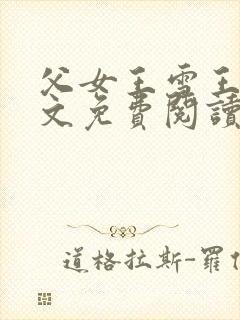 父女王雪王
文免費閱讀
道格拉斯-羅